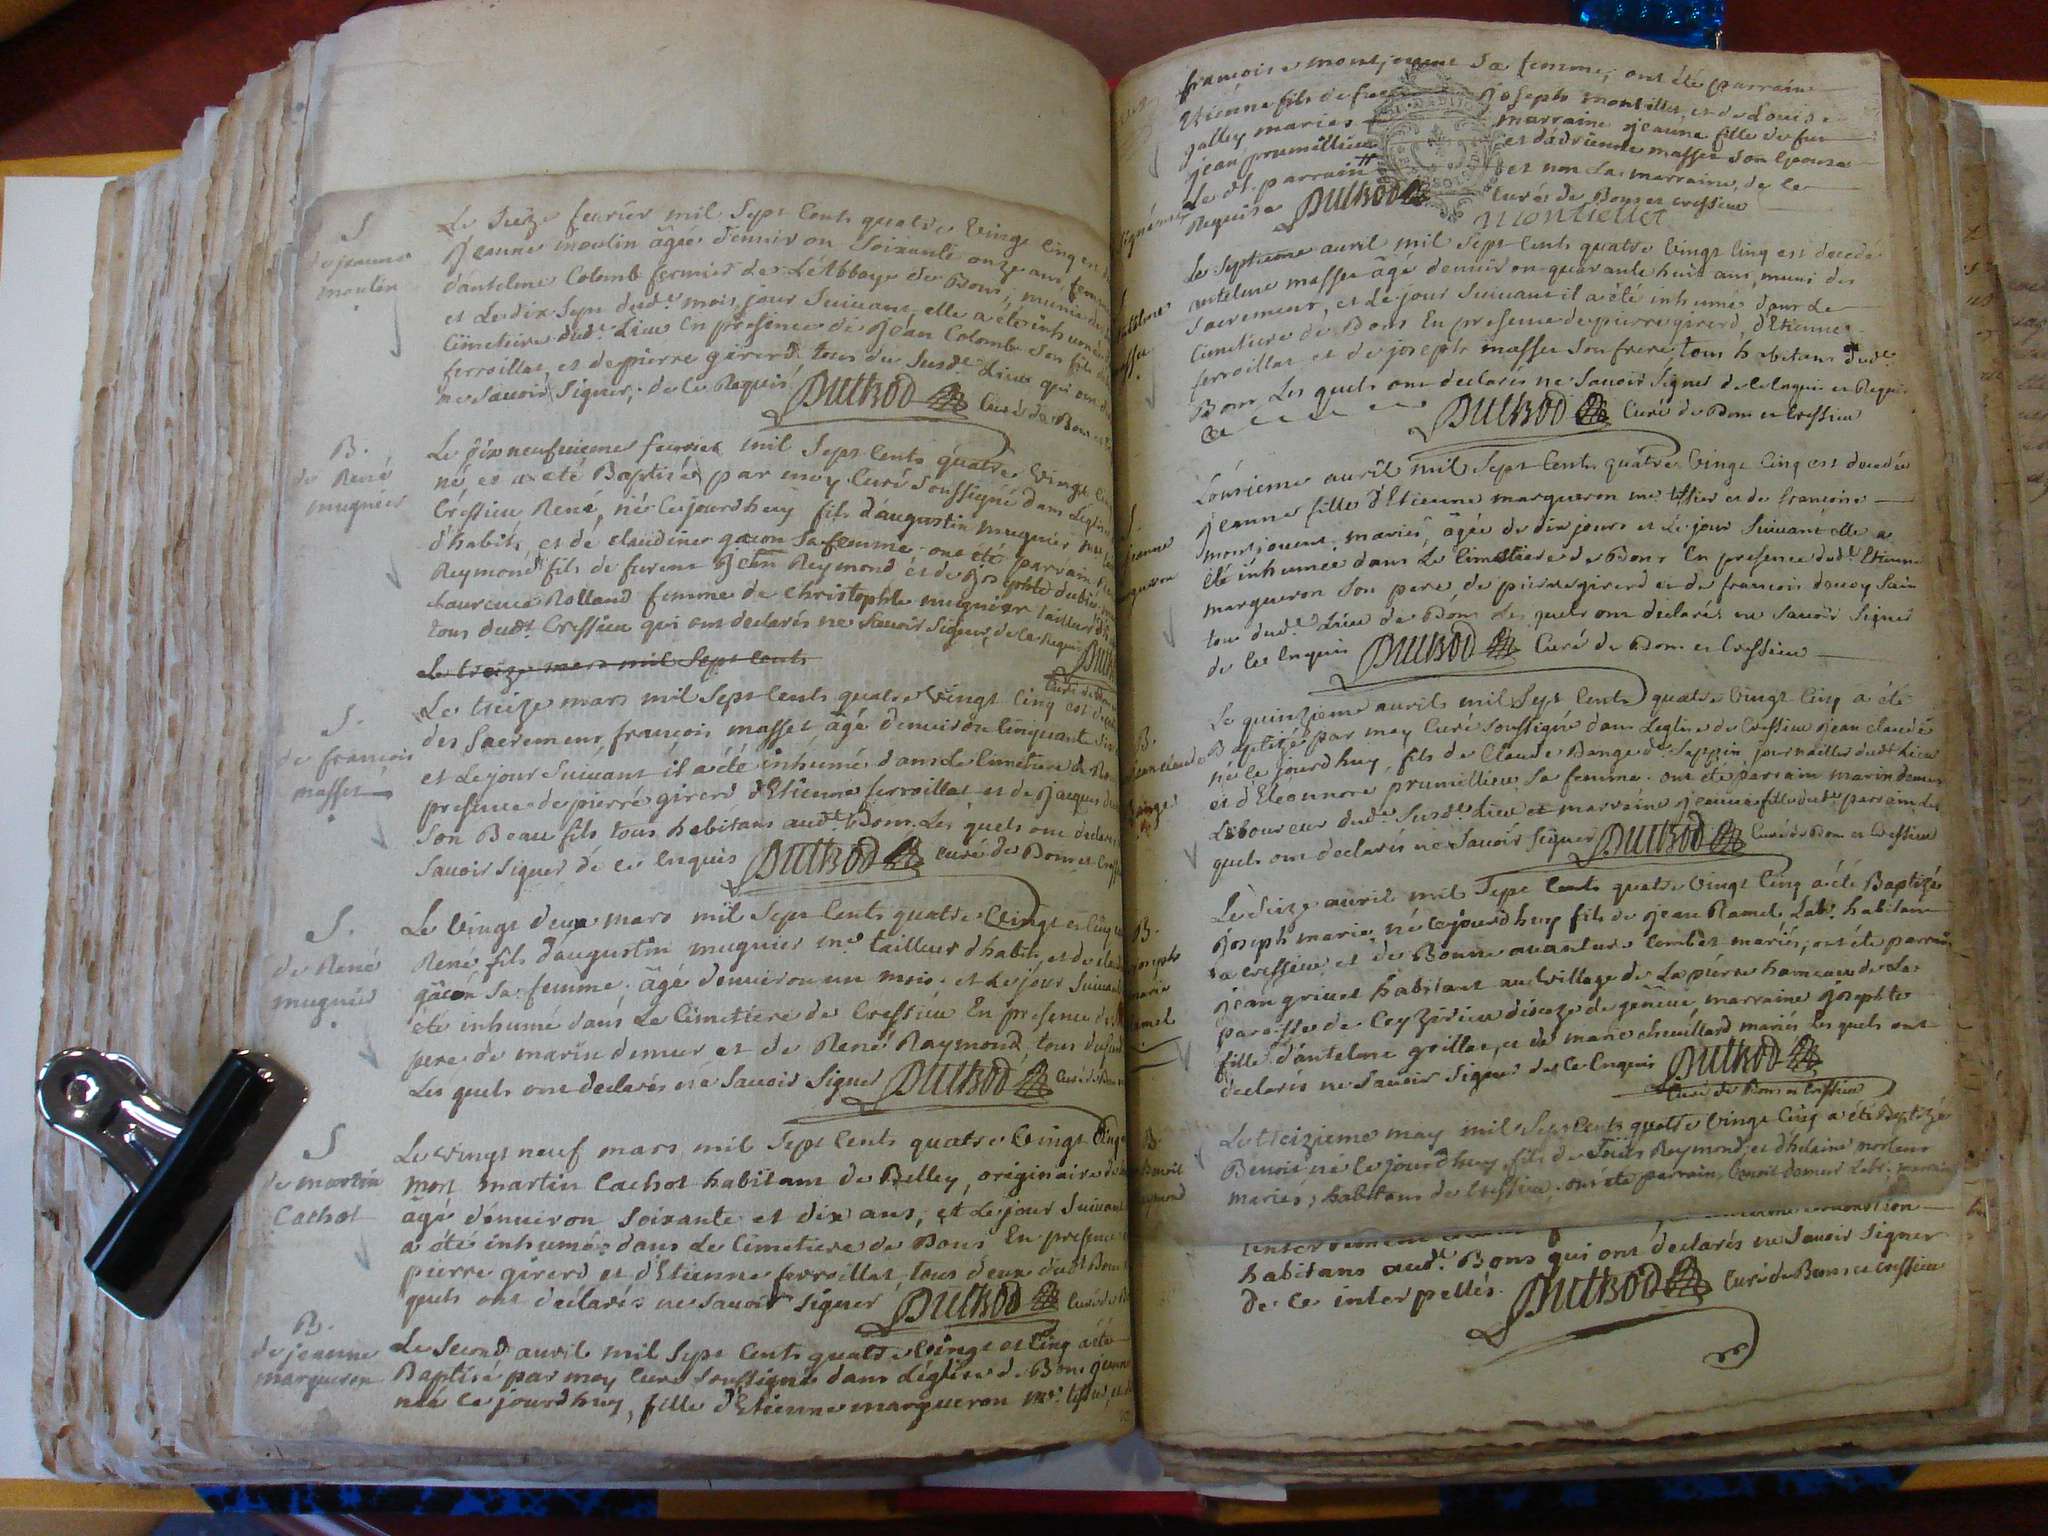 S
de jeanne
moulin
Le seize fevrier mil Sept Cents quatre vingt cinq est
Jeanne moulin âgée d'environ Soixante onze ans, femme
d'antelme Colomb fermier de L'Abbaye de Bons; munie des
et Le dix Sept dudt. mois, jour Suivant, elle a été inhumée
Cimetiere dudt. Lieu En presence de Jean Colomb Son fils
ferroillat, et de pierre girerd tous du Susdt. Lieu qui ont
ne Savoir Signer, de ce Requis Dutrod Curé de Bons et
B.
de René
mugnier
Le dix neufvieme fevrier mil Sept Cents quatre Vingt
né et a été Baptisé par moy Curé Soussigné dans L'eglise
Cressieu René, né Cejourd'huy fils d'augustin mugnier me
d'habits, et de claudine gacon Sa femme. ont été parrain
Reymond fils de furent Jean Reymond et de Josephte
Laurence Rolland femme de Christophle mugnier tailleur
tous dudt. Cressieu qui ont declarés ne Savoir Signer, de ce Requis
Dutrod
Curé de Bons
Le treize mars mil Sept Cents
S.
de françois
masset
Le treize mars mil Sept Cents quatre Vingt Cinq est
des Sacremens, françois masset, âgé d'environ Cinquante
et Le jour Suivant il a été inhumé dans Le Cimetiere de Bons
presence de pierre girerd d'Etienne ferroillat et de Jacques
Son Beau fils, tous habitans audt. Bons. Les quels ont declarés
Savoir Signer de ce Enquis Dutrod Curé de Bons et Cressieu
S.
de René
mugnier
Le Vingt deux mars mil Sept Cents quatre Vingt et Cinq
René, fils d'augustin mugnier me tailleur d'habits, et de
gâcon Sa femme. âgé d'environ un mois. et Le jour Suivant
été inhumé dans Le Cimetiere de Cressieu En presence de
pere de marin demeur et de René Raymond, tous
Les quels ont declarés ne Savoir Signer Dutrod Curé de Bons
S
de martin
Cachot
Le Vingt neuf mars mil Sept Cents quatre Vingt Cinq
mort martin Cachot habitant de Belley, originaire de
âgé d'environ Soixante et dix ans, et Le jour Suivant
a été inhumé dans Le Cimetiere de Bons En presence
pierre girerd et d'Etienne ferroillat, tous deux dudt Bons
quels ont declarés ne Savoir Signer Dutrod Curé de
B.
de jeanne
margueron
Le Second avril mil Sept Cents quatre Vingt et Cinq a été
Baptisé par moy Curé Soussigné dans L'église de Bons jeanne
née ce jourd'huy, fille d'Etienne margueron me. tissier, et de
françoise montjouvent Sa femme, ont été parrain
Etienne fils de feu Joseph montillet, et de Louise
galley mariés marraine jeanne fille de feu
jean proumillieu et d'adrienne masset Son epouse
Le dt. parrain et non La marraine, de ce
Requise Dutrod Curé de Bons et cressieu
montillet
Le Septieme avril mil Sept Cents quatre Vingt Cinq est decedé
antelme masset âgé d'environ quarante huit ans, muni des
Sacremens, et Le jour Suivant il a été inhumé dans Le
Cimetiere de Bons En presence de pierre girerd, d'Etienne
ferroillat et de joseph masset Son frere, tous habitans dudt.
Bons Les quels ont declarés ne Savoir Signer de ce Enquis et Requis
Dutrod Curé de Bons et Cressieu
S.
jeanne
margueron
L'onzieme avril mil Sept Cents quatre Vingt Cinq est decedée
jeanne fille d'Etienne margueron me. tissier et de françoise
montjouvent mariés, âgée de dix jours et Le jour Suivant elle a
été inhumée dans Le Cimetiere de Bons En presence dudt Etienne
margueron Son pere, de pierre girerd et de francois
tous dudt. Lieu de Bons Les quels ont declarés ne Savoir Signer
de ce Enquis Dutrod Curé de Bons et Cressieu
B.
jean claude
Bange
Le quinzieme avril mil Sept Cents quatre Vingt Cinq a été
Baptisé par moy Curé Soussigné dans L'eglise de Cressieu jean claude
né ce jourd'huy, fils de Claude Bange dt. Seppin journailler dudt Lieu
et d'Eleonnore prumillieu Sa femme. ont été parrain marin demeur
Laboureur dudt. Susdt. Lieu et marraine jeanne fille dudt. parrain Les
quels ont declarés ne Savoir Signer Dutrod Curé de Bons et Cressieu
B.
joseph
marie
Ramel
Le Seize avril mil Sept Cents quatre Vingt Cinq a été Baptizé
joseph marie, né cejourd'huy fils de jean Ramel Labr. habitant
a cressieu, et de Bonne avanture Combet mariés; ont été parrain
jean grivet habitant au Village de La pierre hameau de La
paroisse de Ceyzerieu diocèze de genève, marraine josephte
fille d'antelme grillet, et de marie chevillard mariés Les quels ont
declarés ne Savoir Signer de ce Enquis Dutrod
Curé de Bons et Cressieu
B.
Benoit
Reymond
Le treizieme may mil Sept Cents quatre Vingt Cinq a été Baptizé
Benoit né ce jourd'huy, fils de Reymond, et d'helaine
mariés, habitans de Cressieu. ont été parrain, Benoit demeur Labr. marraine
habitans audt. Bons qui ont declarés ne Savoir Signer
de ce interpellés. Dutrod Curé de Bons et cressieu